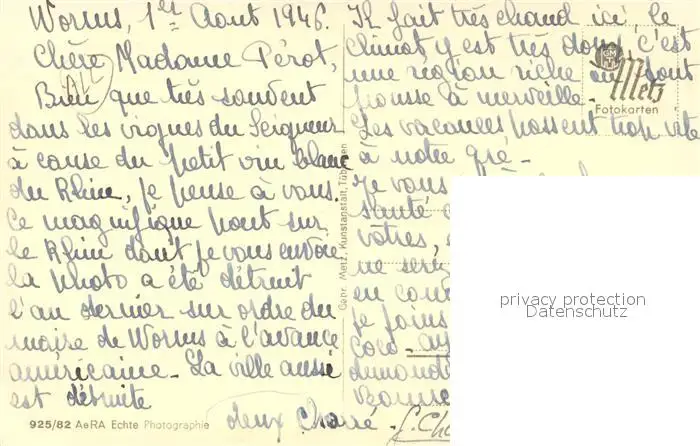 Worms, 1er Aout 1946.
Chère Madame Pérot,
Bien que très souvent
dans les vignes du Seigneur
à cause du petit vin blanc
du Rhin, je pense à vous.
Ce magnifique pont sur
le Rhin dont je vous envoie
la photo a été détruit
l'an dernier sur ordre du
maire de Worms à l'avance
américaine. La ville aussi
est détruite
Il fait très chaud ici, le
climat y est très doux, c'est
une région riche où tout
pousse à merveille.
Les vacances passent trop vite
à notre gré.
Je vous
santé
vôtres,
ne
en
je joins
Coco
deux
925/82 AeRA Echte Photographie
Gebr. Metz, Kunstanstalt, Tübingen
Metz
Fotokarten
privacy protection
Datenschutz